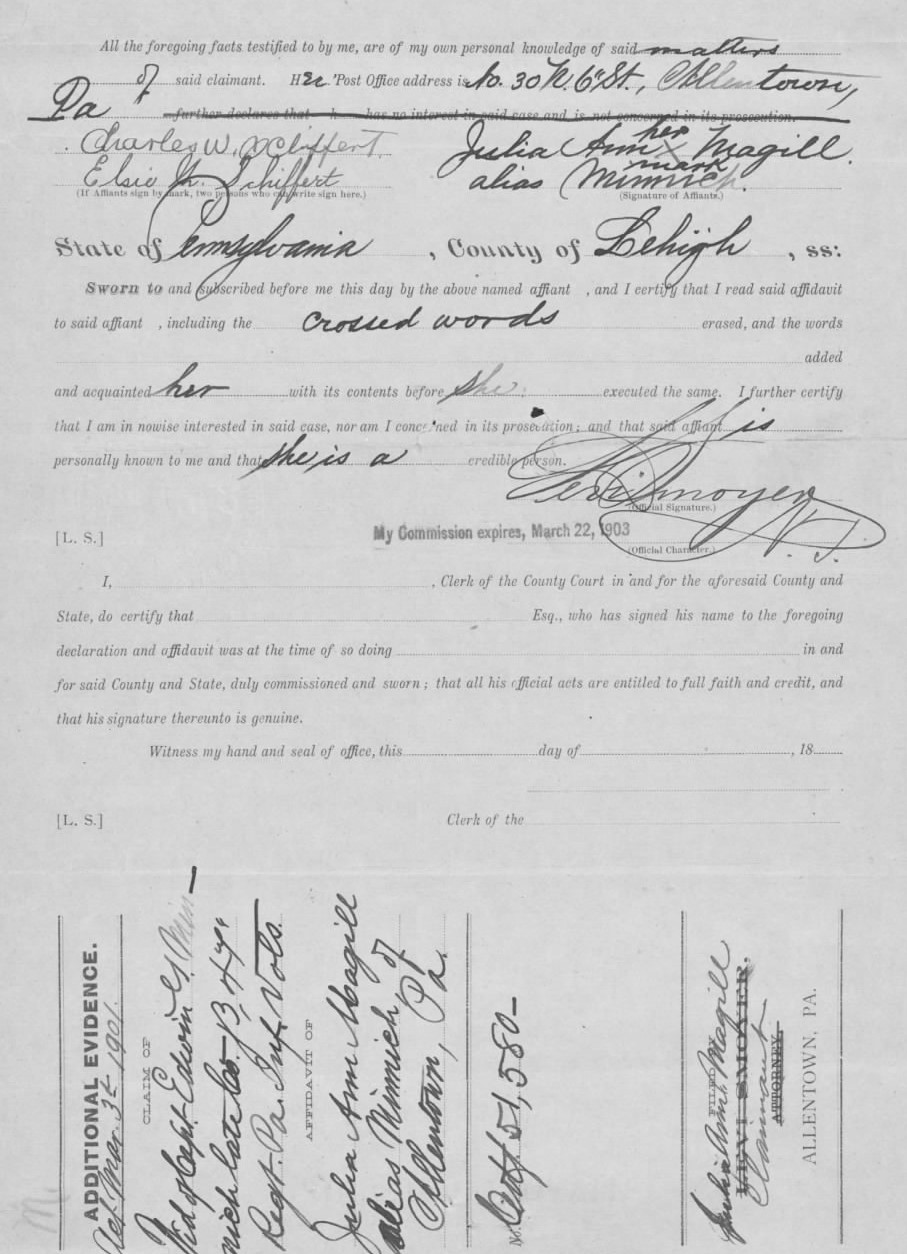 All the foregoing facts testified to by me, are of my own personal knowledge of said matters
of said claimant. Her Post Office address is No. 30 N. 6" St., Allentown,
Pa further declares that h has no interest in said case and is not concerned in its prosecution.
Charles W. Schiffert
Julia Ann her X mark Magill
Elsie M. Schiffert
alias Minnich.
(If Affiants sign by mark, two persons who can write sign here.)
(Signature of Affiants.)
State of Pennsylvania, County of Lehigh, ss:
Sworn to and subscribed before me this day by the above named affiant , and I certify that I read said affidavit
to said affiant , including the crossed words erased, and the words
added
and acquainted her with its contents before she executed the same. I further certify
that I am in nowise interested in said case, nor am I concerned in its prosecution; and that said affiant is
personally known to me and that she is a credible person.
(Official Signature.)
My Commission expires, March 22, 1903
N. P.
[L. S.]
(Official Character.)
I, , Clerk of the County Court in and for the aforesaid County and
State, do certify that Esq., who has signed his name to the foregoing
declaration and affidavit was at the time of so doing in and
for said County and State, duly commissioned and sworn; that all his official acts are entitled to full faith and credit, and
that his signature thereunto is genuine.
Witness my hand and seal of office, this day of , 18
[L. S.] Clerk of the
ADDITIONAL EVIDENCE.
Mar. 3 1901.
CLAIM OF
Wid of Capt. Edwin G. Min-
nich late Co. B, 47"
Regt. Pa. Inf. Vols.
AFFIDAVIT OF
Julia Ann Magill
alias Minnich of
Allentown, Pa.
No. Ctf 51,580-
FILED BY
Julia Ann Magill
LEVI SMOYER,
Claimant
ATTORNEY,
ALLENTOWN, PA.
M.